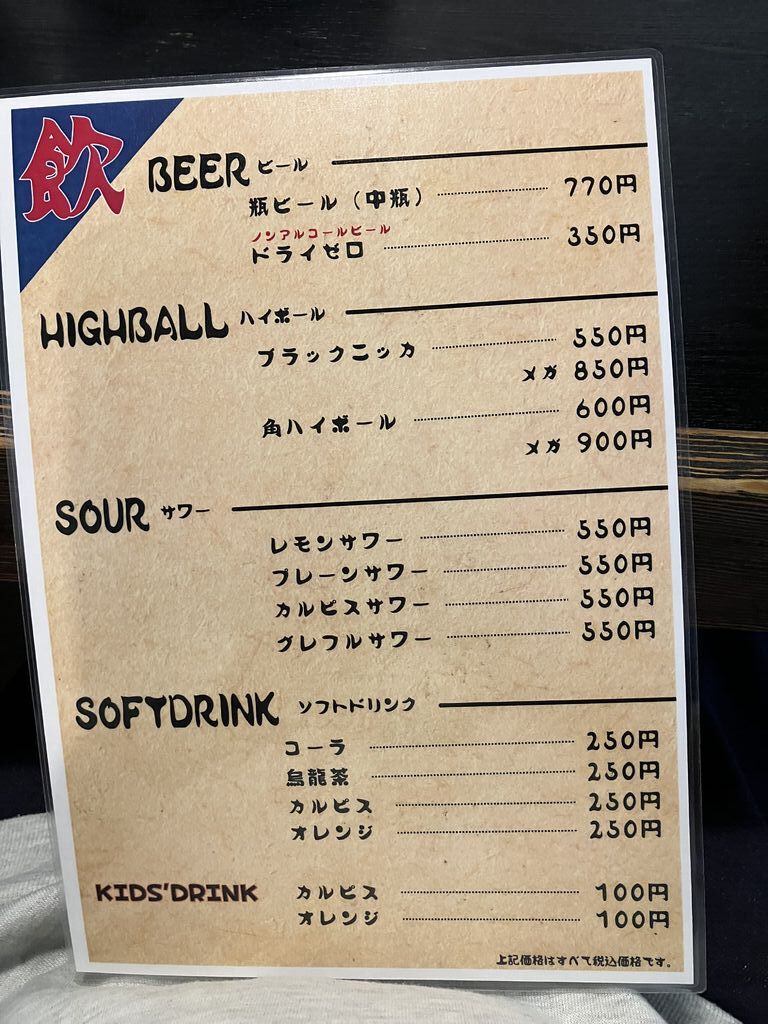 飲
BEER ビール
瓶ビール（中瓶） 770円
ノンアルコールビール
ドライゼロ 350円
HIGHBALL ハイボール
ブラックニッカ 550円
メガ 850円
角ハイボール 600円
メガ 900円
SOUR サワー
レモンサワー 550円
プレーンサワー 550円
カルピスサワー 550円
グレフルサワー 550円
SOFTDRINK ソフトドリンク
コーラ 250円
烏龍茶 250円
カルピス 250円
オレンジ 250円
KIDS'DRINK カルピス 100円
オレンジ 100円
上記価格はすべて税込価格です。